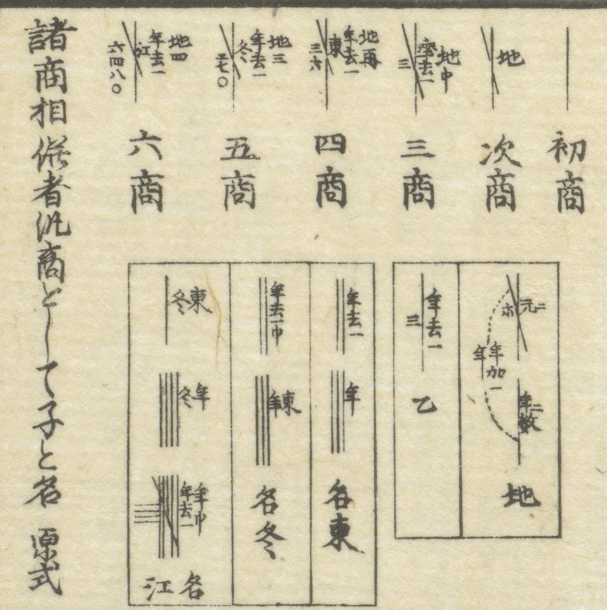 初商
地
次商
地巾
年去一
三
三商
地再
年去一
東
三六
四商
地三
年去一
冬
二七〇
五商
地四
年去一
江
六四八〇
六商
二元
六
年加一
年
二年数
地
年去一
三
乙
年去一
年
名東
年去一巾
東
年
名冬
東
冬
年
冬
年巾
年去一
名江
諸商相併者汎商として子と名 原式